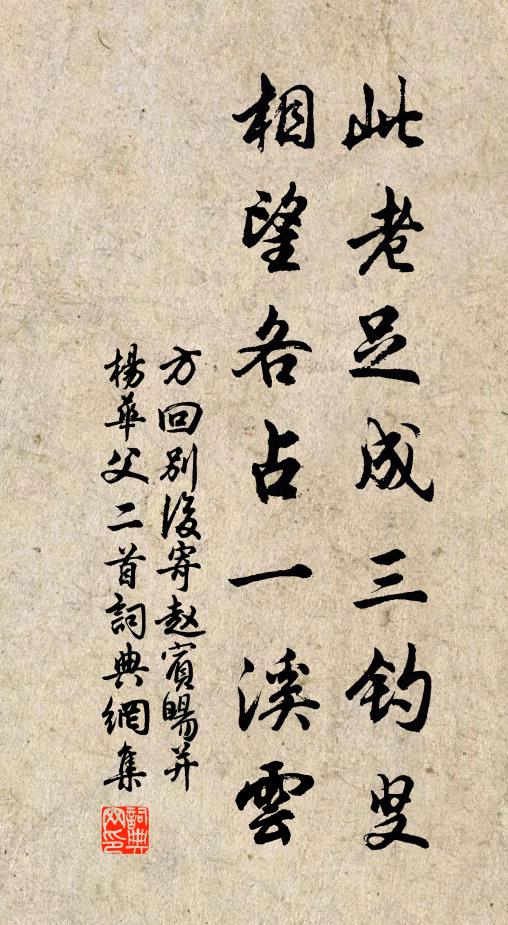 此老足成三钓叟
相望各占一溪雲
方回别後寄赵賓暘并
楊華父二首詞典網集
詞典
网印